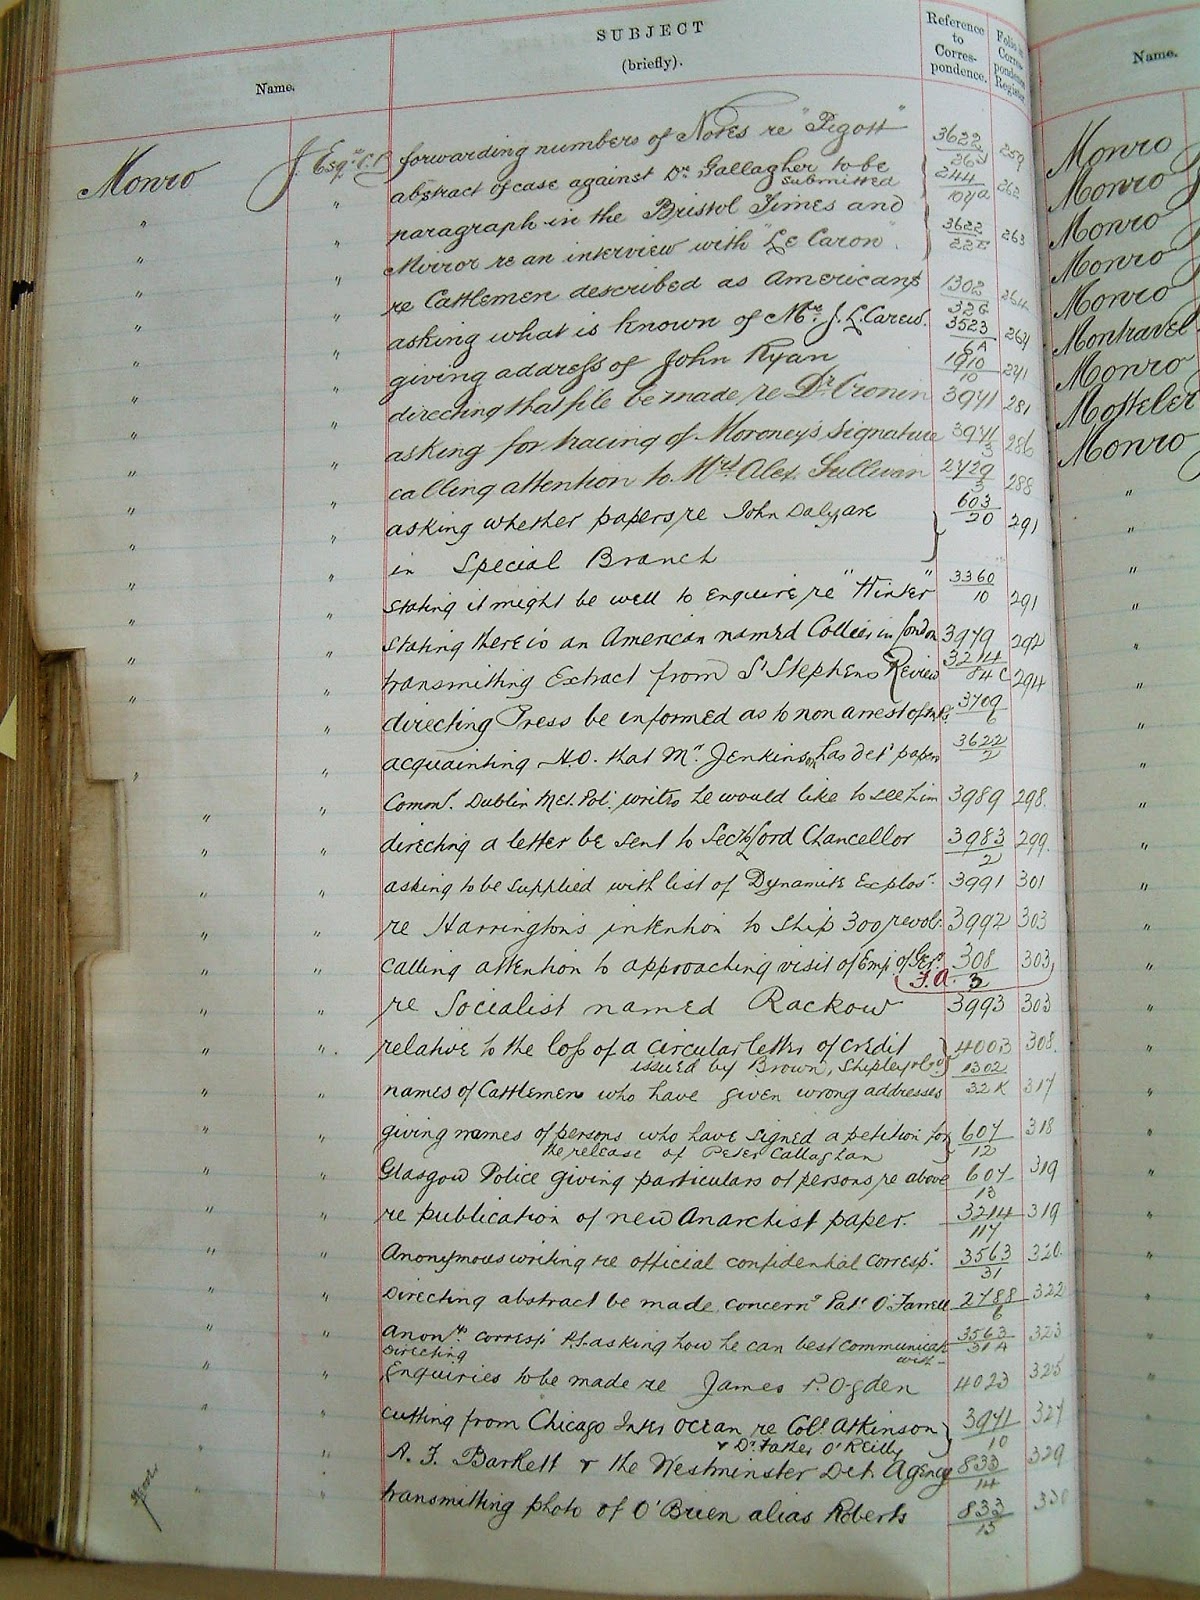 Name.
SUBJECT
(briefly).
Reference to Corres- pondence.
Folio in Corres- pondence Register.
Name.
Monro J. Esqre C.B. forwarding numbers of Notes re "Pigott" 3622/26J 259
" " abstract of case against Dr Gallagher to be submitted 244/104a 262
" " paragraph in the Bristol Times and
Mirror re an interview with "Le Caron". 3622/22E 263
" " re Cattlemen described as Americans 1302/32G 264
" " asking what is known of Mr. J. L. Carew. 3523/6A 264
" " giving address of John Ryan 1910/10 271
" " directing that file be made re Dr Cronin 3941 281
" " asking for tracing of Moroney's signature 3941/3 286
" " calling attention to Mrs Alex. Sullivan 2429/3 288
" " asking whether papers re John Daly are
in Special Branch 603/20 291
" " stating it might be well to enquire re "Hinter" 3360/10 291
" " stating there is an American named Collies in London 3979 292
" " transmitting Extract from St Stephens Review 3214/84C 294
" " directing Press be informed as to non arrest of 3709/6
" " acquainting H.O. that Mr. Jenkinson has det papers 3622/2
" " Commr. Dublin Met. Pol: writes he would like to see him 3989 298.
" " directing a letter be sent to Secy Lord Chancellor 3983/2 299.
" " asking to be supplied with list of Dynamite Explos. 3991 301
" " re Harrington's intention to ship 300 revolr. 3992 303
" " calling attention to approaching visit of Emp. of Ger. 308/3 303
F.A.
" " re Socialist named Rackow 3993 303
" " relative to the loss of a circular letter of credit 4003 308.
issued by Brown, Shipley & Co
" " names of Cattlemen who have given wrong addresses 1302/32K 317
" " giving names of persons who have signed a petition for 607/12 318
the release of Peter Callaghan
" " Glasgow Police giving particulars of persons re above 607/13 319
" " re publication of new Anarchist paper. 3214/117 319
" " Anonymous writing re official confidential corresp. 3563/31 320.
" " Directing abstract be made concerng Patk O'Farrell 2788/6 322
" " anonms corresp P.S. asking how he can best communicate with - 3563/31A 323
directing
" " Enquiries to be made re James P. Ogden 4023 325
" " cutting from Chicago Inter Ocean re Colr. Atkinson 3941/10 327
& Dr. Father O'Reilly
" " A. F. Barkett & the Westminster Det. Agency 833/14 329
" " transmitting photo of O'Brien alias Roberts 833/15 330
Monro
Monro
Monro
Monro
Monro
Montravel
Monro
Motteler
Monro